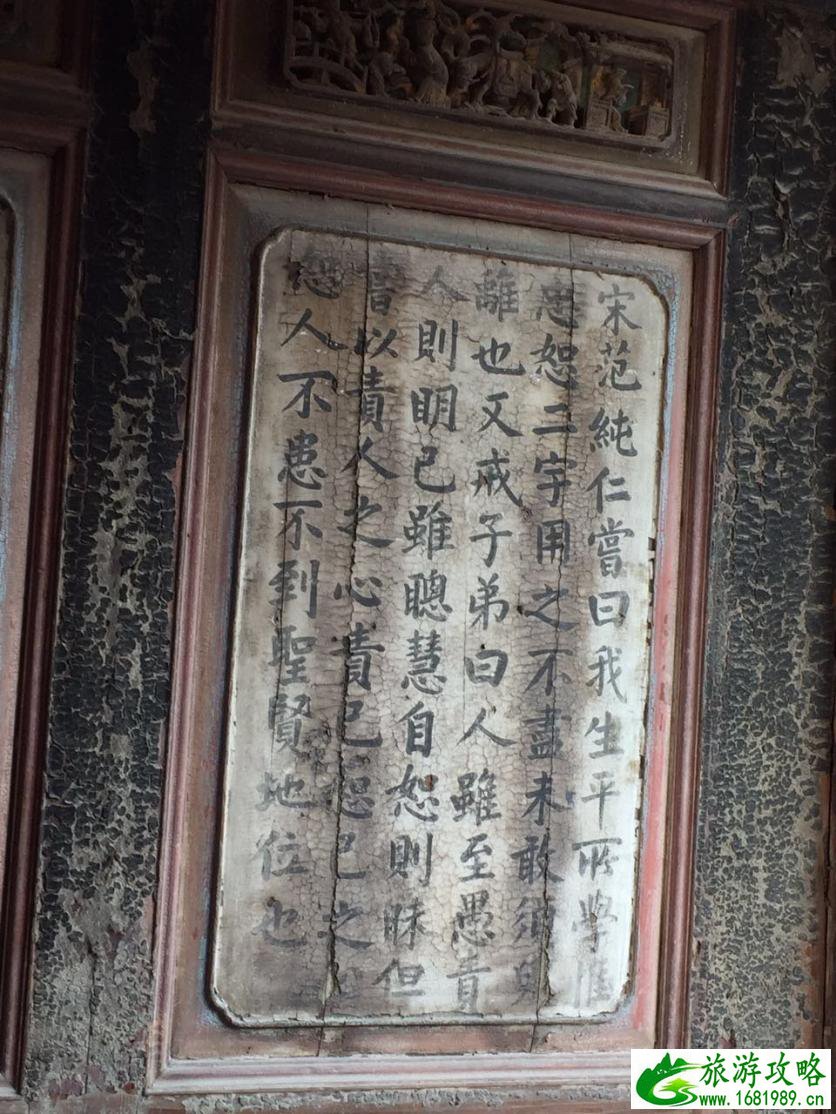 宋范純仁嘗曰我生平所學惟
忠恕二字用之不盡未敢須臾
離也又戒子弟曰人雖至愚責
人則明已雖聰慧自恕則昧但
嘗以責人之心責已恕已之心
恕人不患不到聖賢地位也
旅游攻略
www.1681989.cn